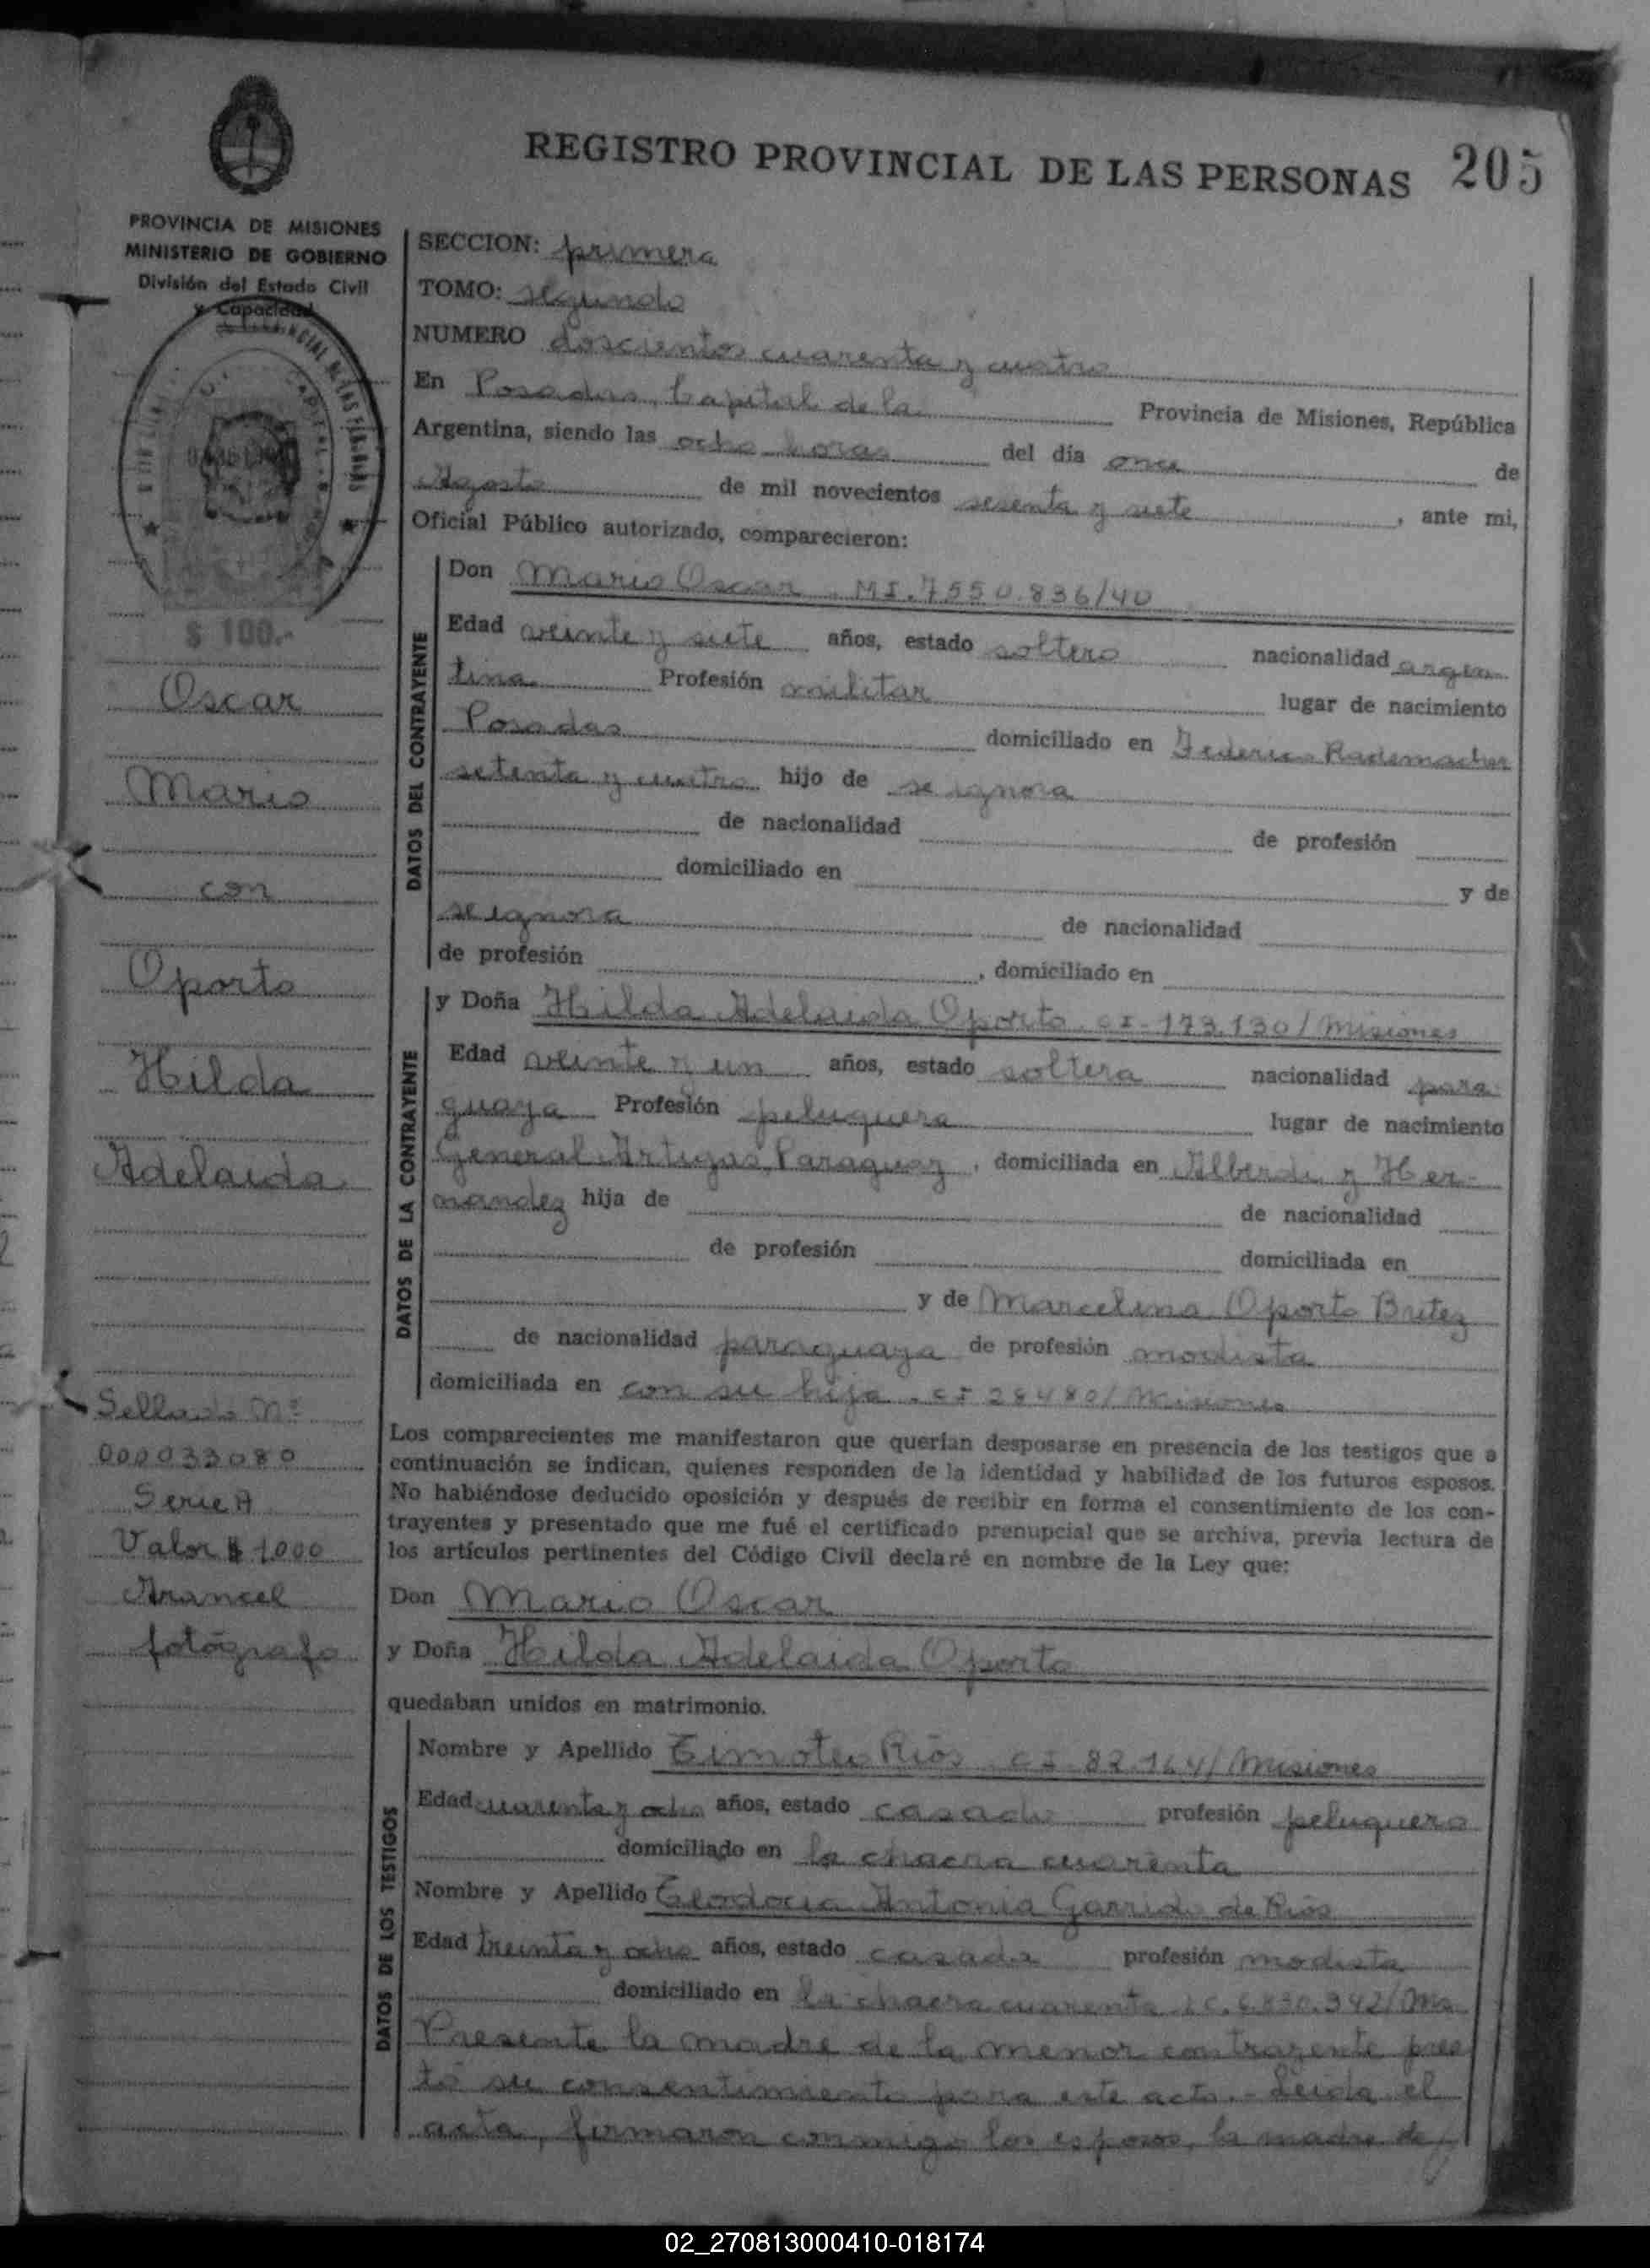 REGISTRO PROVINCIAL DE LAS PERSONAS 205
PROVINCIA DE MISIONES
MINISTERIO DE GOBIERNO
División del Estado Civil
y Capacidad
$ 100.-
Oscar
Mario
con
Oporto
Hilda
Adelaida
Sellado Nº
000033080
Serie A
Valor $ 1000
Arancel
fotógrafo
SECCION: primera
TOMO: segundo
NUMERO doscientos cuarenta y cuatro
En Posadas, Capital de la Provincia de Misiones, República
Argentina, siendo las ocho horas del día once de
Agosto de mil novecientos sesenta y siete, ante mi,
Oficial Público autorizado, comparecieron:
DATOS DEL CONTRAYENTE
Don Mario Oscar - MI. 7550.836/40
Edad veinte y siete años, estado soltero nacionalidad argen
tina Profesión militar lugar de nacimiento
Posadas domiciliado en Federico Rademacher
setenta y cuatro hijo de se ignora
de nacionalidad de profesión
domiciliado en y de
se ignora de nacionalidad
de profesión , domiciliado en
DATOS DE LA CONTRAYENTE
y Doña Hilda Adelaida Oporto CI- 173.130/Misiones
Edad veinte y un años, estado soltera nacionalidad para
guaya Profesión peluquera lugar de nacimiento
General Artigas, Paraguay, domiciliada en Alberdi y Her-
nandez hija de de nacionalidad
de profesión domiciliada en
y de Marcelina Oporto Britez
de nacionalidad paraguaya de profesión modista
domiciliada en con su hija - CI 28480/Misiones
Los comparecientes me manifestaron que querían desposarse en presencia de los testigos que a
continuación se indican, quienes responden de la identidad y habilidad de los futuros esposos.
No habiéndose deducido oposición y después de recibir en forma el consentimiento de los con-
trayentes y presentado que me fué el certificado prenupcial que se archiva, previa lectura de
los artículos pertinentes del Código Civil declaré en nombre de la Ley que:
Don Mario Oscar
y Doña Hilda Adelaida Oporto
quedaban unidos en matrimonio.
DATOS DE LOS TESTIGOS
Nombre y Apellido Timoteo Ríos CI- 82.164/Misiones
Edad cuarenta y ocho años, estado casado profesión peluquero
domiciliado en la chacra cuarenta
Nombre y Apellido Teodocia Antonia Garrido de Ríos
Edad treinta y ocho años, estado casada profesión modista
domiciliado en la chacra cuarenta LC. 6.830.342/Ms
Presente la madre de la menor contrayente pres
tó su consentimiento para este acto.- Leida el
acta, firmaron conmigo los esposos, la madre de
02_270813000410-018174